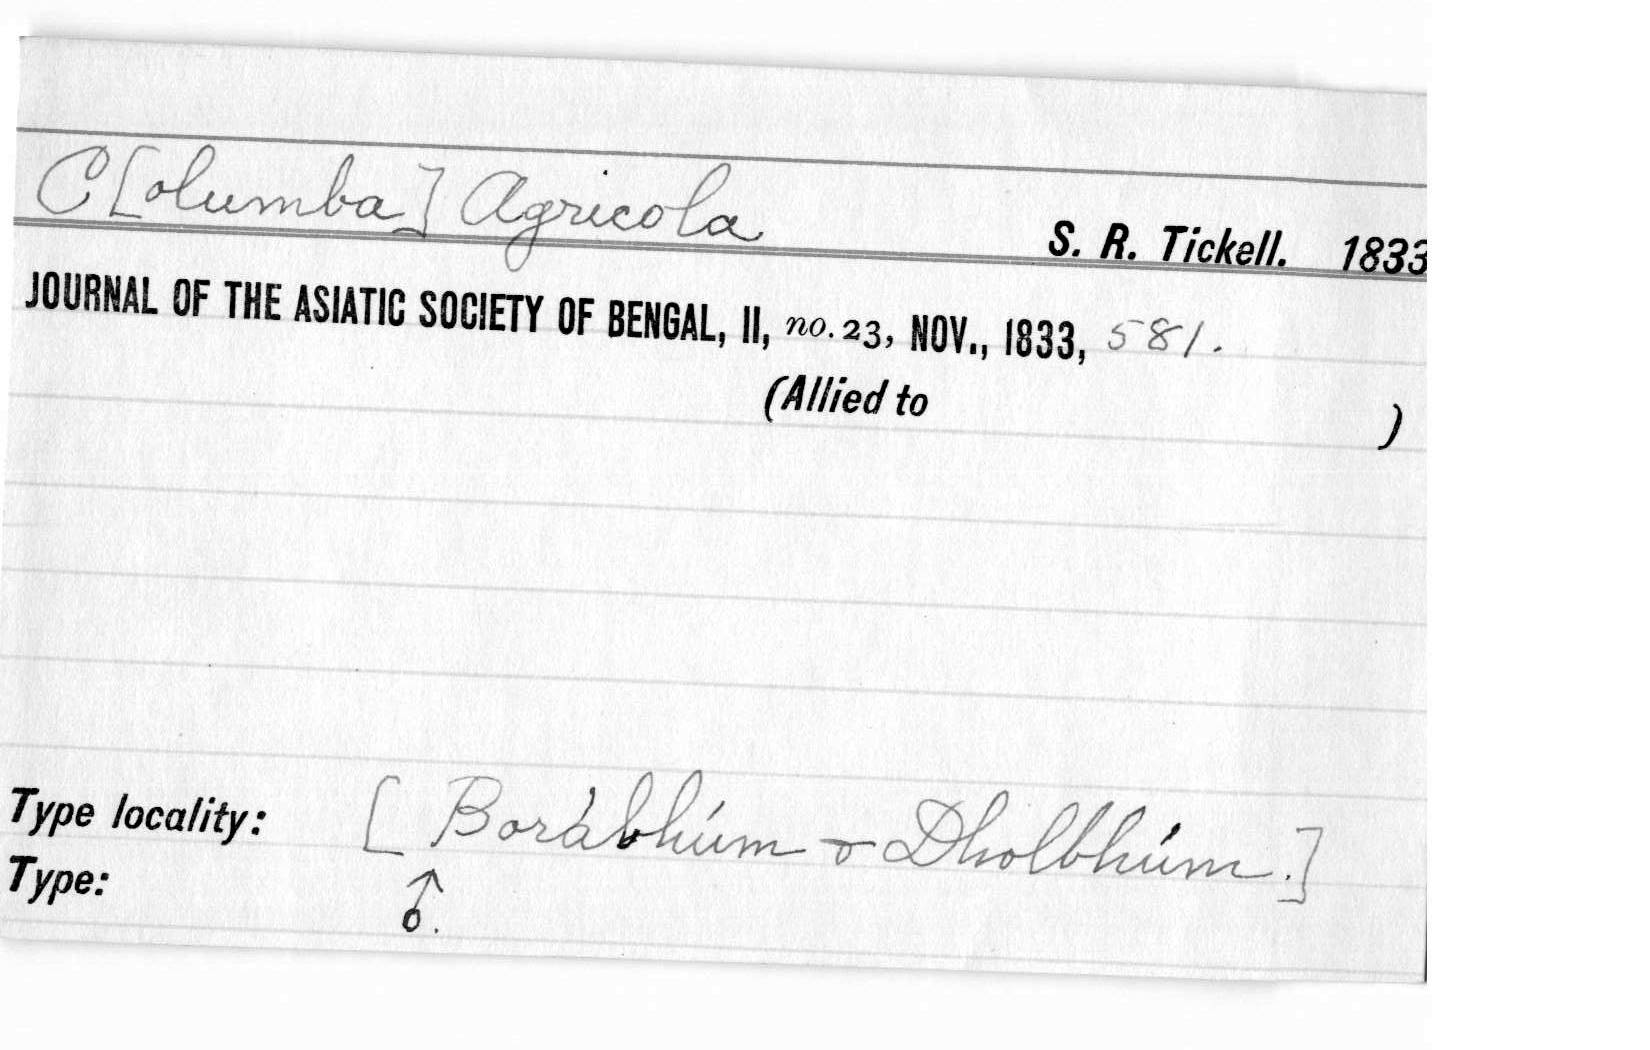 C[olumba] Agricola
S. R. Tickell. 1833
JOURNAL OF THE ASIATIC SOCIETY OF BENGAL, II, no. 23, NOV., 1833, 581.
(Allied to )
Type locality: [Borábhúm & Dholbhúm.]
Type: ♂.